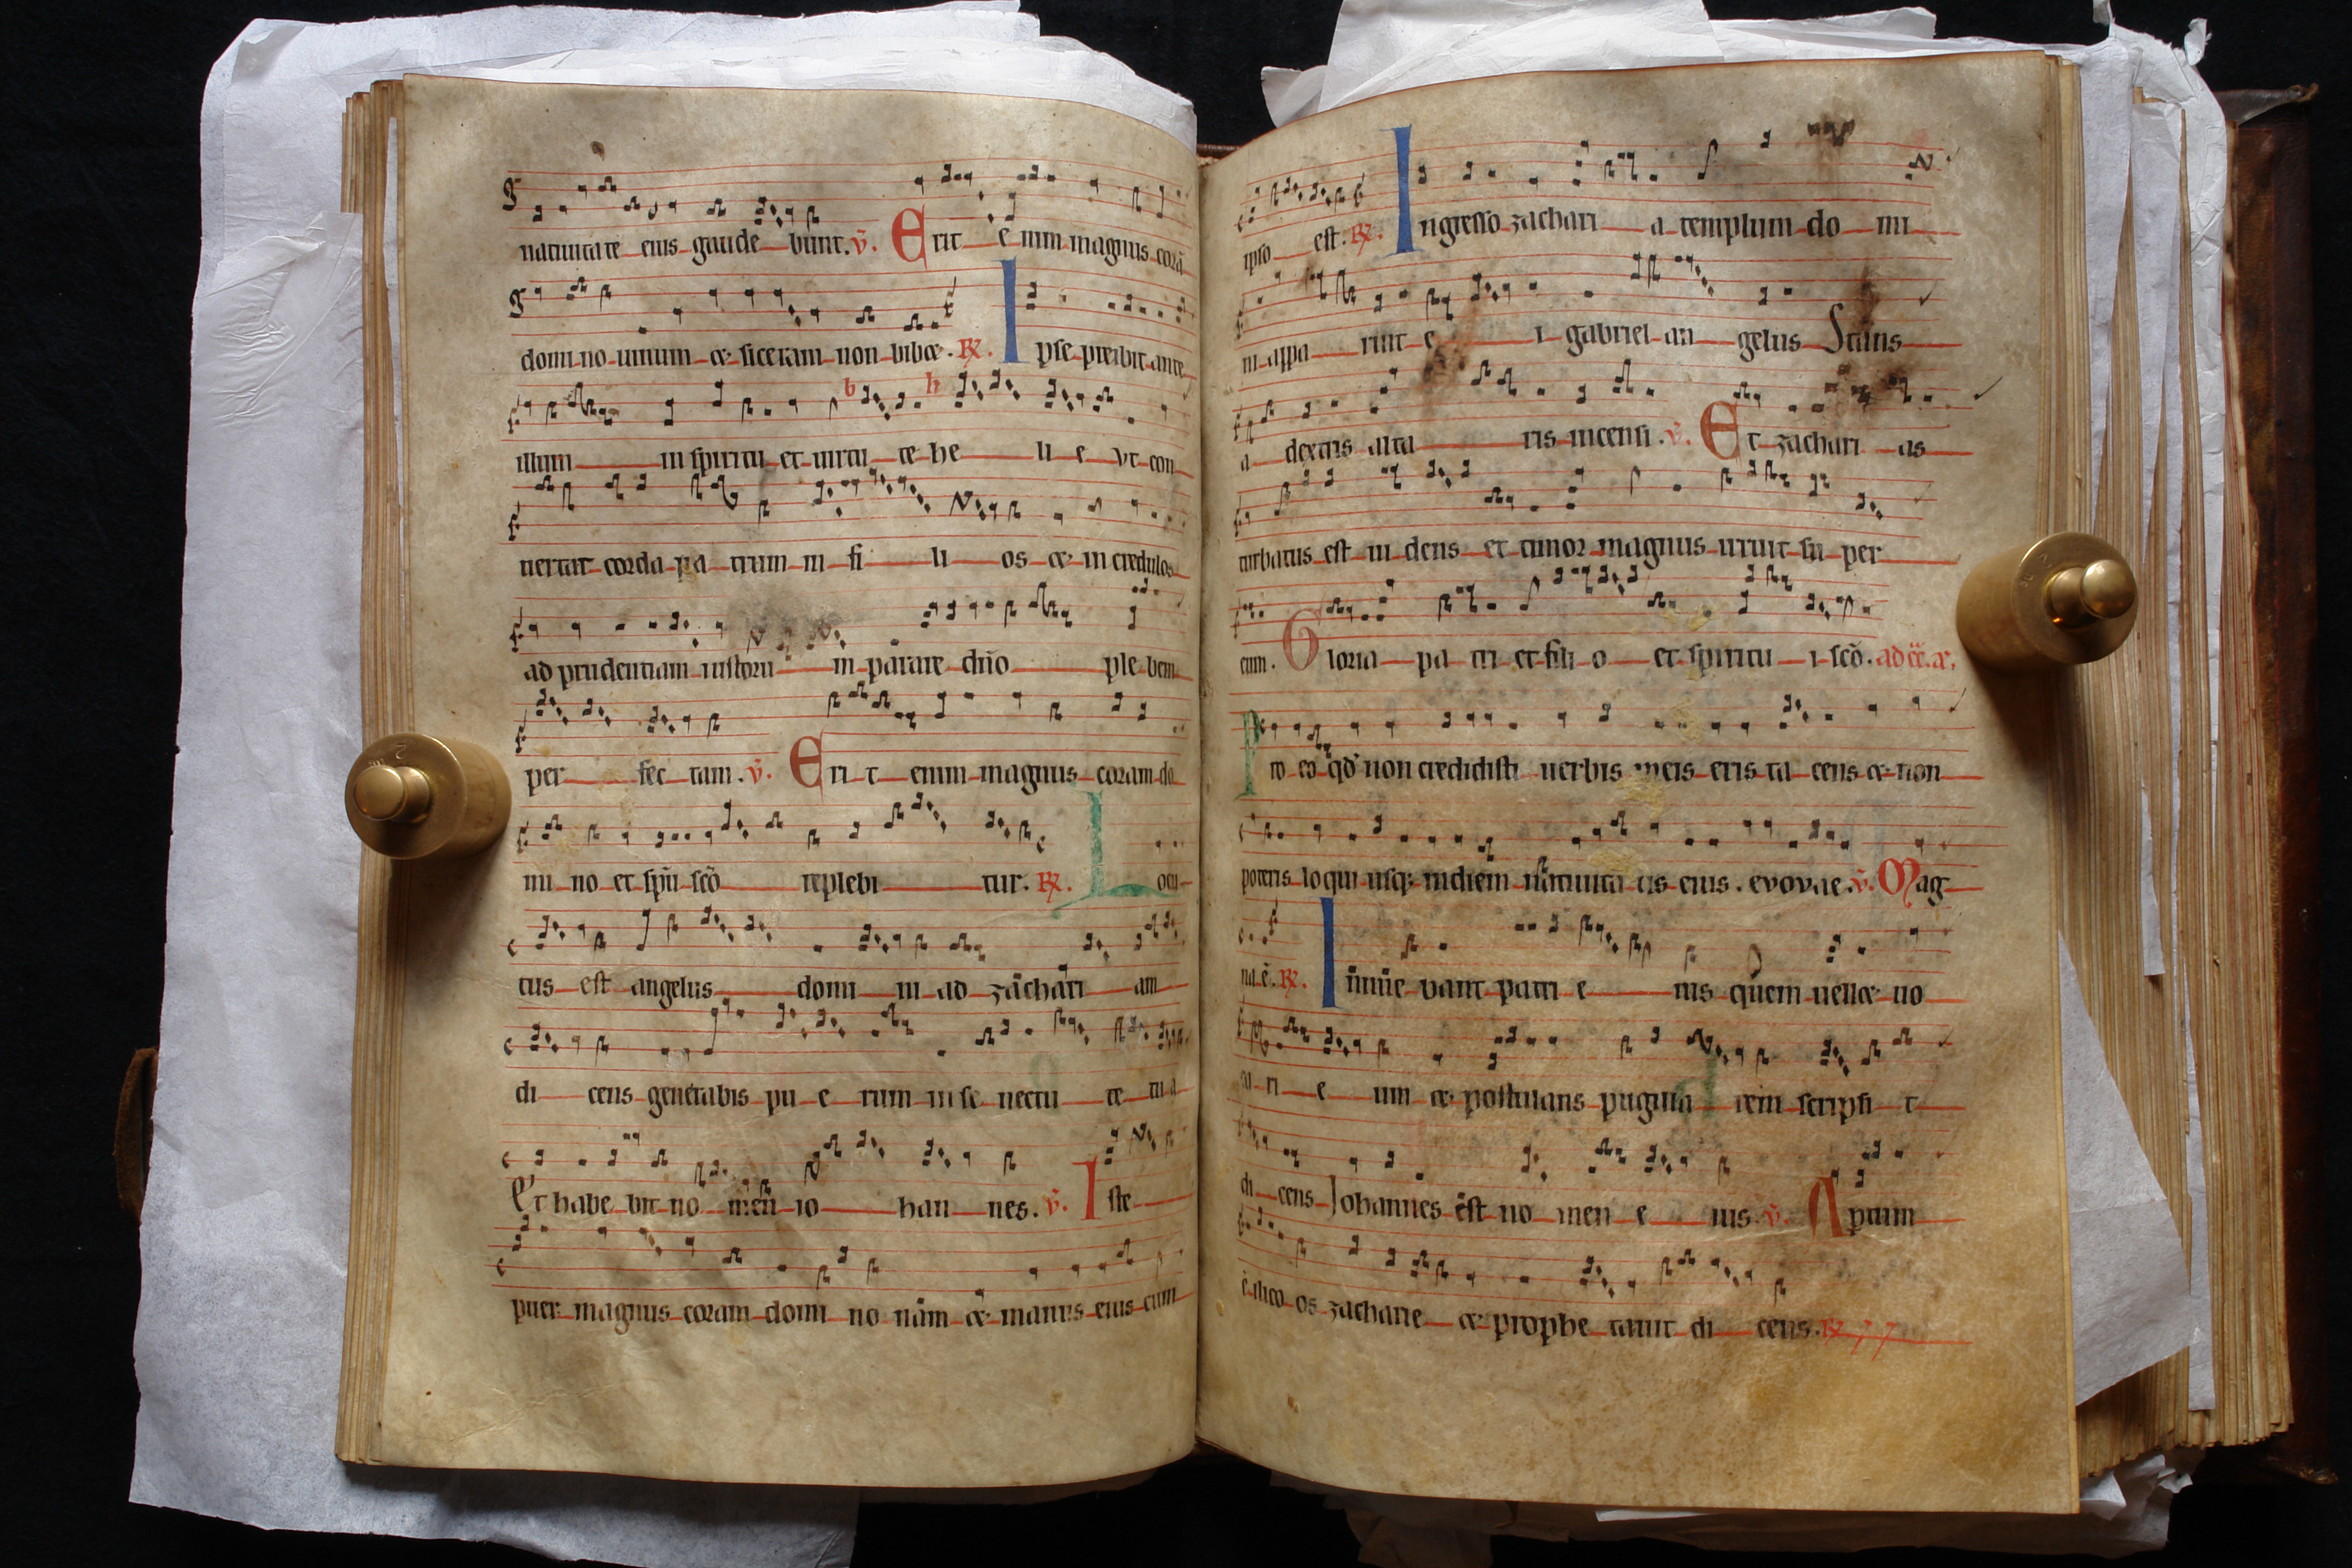 natiuitate eius gaude bunt. v̄. Erit e nim magnus corā
domi no uinum & siceram non bibet. R̸. Ipse preibit ante
illum in spiritu et uirtu te he li e vt con
uertat corda pa trum in fi li os & in credulos
ad prudentiam iustorū in parare dn̄o ple bem
per fec tam. v̄. Eri t enim magnus coram do
mi no et spū scō replebi tur. R̸. Locu
tus est angelus domi ni ad zachari am
di cens generabis pu e rum in se nectu te tu a
Et habe bit no men io han nes. v̄. Iste
puer magnus coram domi no nam & manus eius cum
ipso est. R̸. Ingresso zachari a templum do mi
ni appa ruit e i gabriel an gelus Stans
a dextris alta ris incensi. v̄. Et zachari as
turbatus est ui dens et timor magnus irruit su per
eum. Gloria pa tri et fili o et spiritu i scō.
Pro eo qd̄ non credidisti uerbis meis eris ta cens & non
poteris loqui usq; indiem natiuita tis eius. evovae. v̄. Mag
na.ē. R̸. Innue bant patri e ius quem uellet uo
ca ri e um & postulans pugilla rem scripsi t
di cens Johannes est no men e ius v̄. Apertum
ē ilico os zacharie & prophe tauit di cens. R̸.